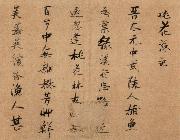 桃花源記
晉太元中武陵人捕魚
為業緣溪行忘路之
遠近忽逢桃花林夾
百步中無雜樹芳草鮮
美落英繽紛漁人甚